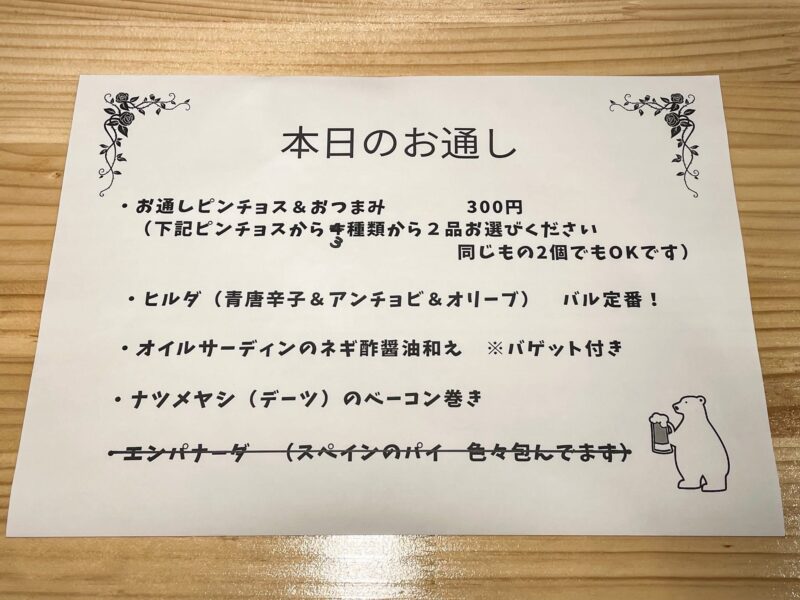 本日のお通し
・お通しピンチョス＆おつまみ 300円
（下記ピンチョスから4種類から２品お選びください
3
同じもの2個でもOKです）
・ヒルダ（青唐辛子＆アンチョビ＆オリーブ） バル定番！
・オイルサーディンのネギ酢醤油和え ※バゲット付き
・ナツメヤシ（デーツ）のベーコン巻き
・エンパナーダ （スペインのパイ 色々包んでます）